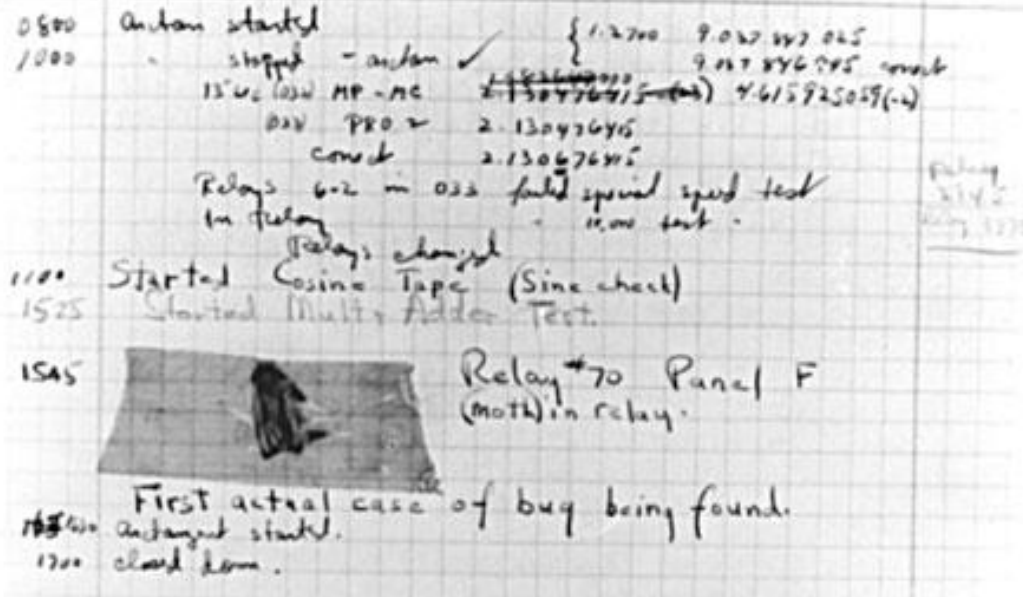 0800 antan started { 1.2700 9.037 847 025
1000 " stopped - antan ✓ 9.037 846 995 correct
13" uc (032) MP - MC 2.130476415 (-3) 4.615925059(-2)
033 PRO 2 2.130476415
correct 2.130676415
Relays 6-2 in 033 failed special speed test
In Relay " 11.000 test "
Relay
2145
Relays changed
1100 Started Cosine Tape (Sine check)
1525 Started Mult+Adder Test.
1545 Relay #70 Panel F
(moth) in relay.
First actual case of bug being found.
1630 antangent started.
1700 closed down.